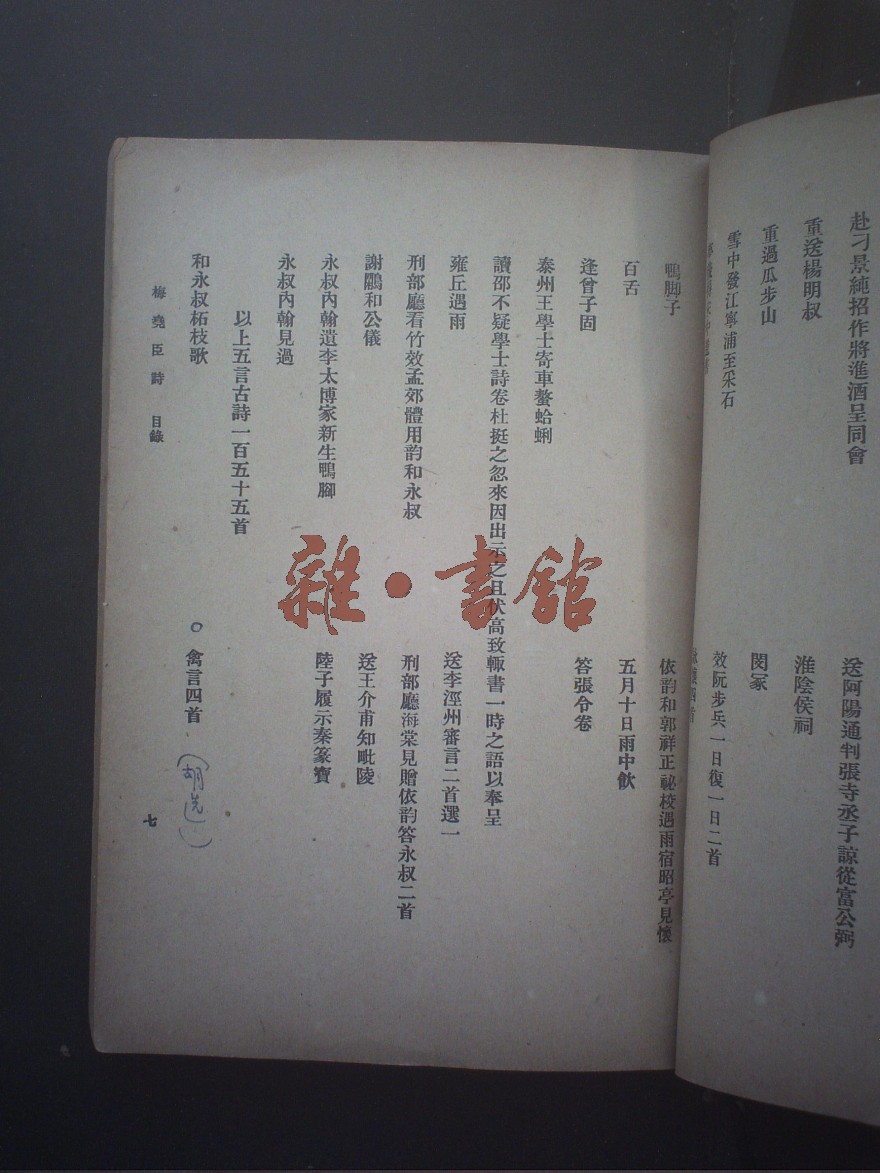 赴刁景純招作將進酒呈同會
送阿陽通判張寺丞子諒從富公弼
重送楊明叔
淮陰侯祠
重過瓜步山
閔冢
雪中發江寧浦至采石
效阮步兵一日復一日二首
鴨腳子
依韵和郭祥正祕校遇雨宿昭亭見懷
百舌
五月十日雨中飲
逢曾子固
答張令卷
泰州王學士寄車螯蛤蜊
讀邵不疑學士詩卷杜挺之忽來因出示之且伏高致輒書一時之語以奉呈
雍丘遇雨
送李涇州審言二首選一
刑部廳看竹效孟郊體用韵和永叔
刑部廳海棠見贈依韵答永叔二首
謝鷳和公儀
送王介甫知毗陵
永叔內翰遺李太博家新生鴨腳
陸子履示秦篆寶
永叔內翰見過
以上五言古詩一百五十五首
和永叔柘枝歌
○ 禽言四首 (胡选)
梅堯臣詩 目錄
七
雜·書館